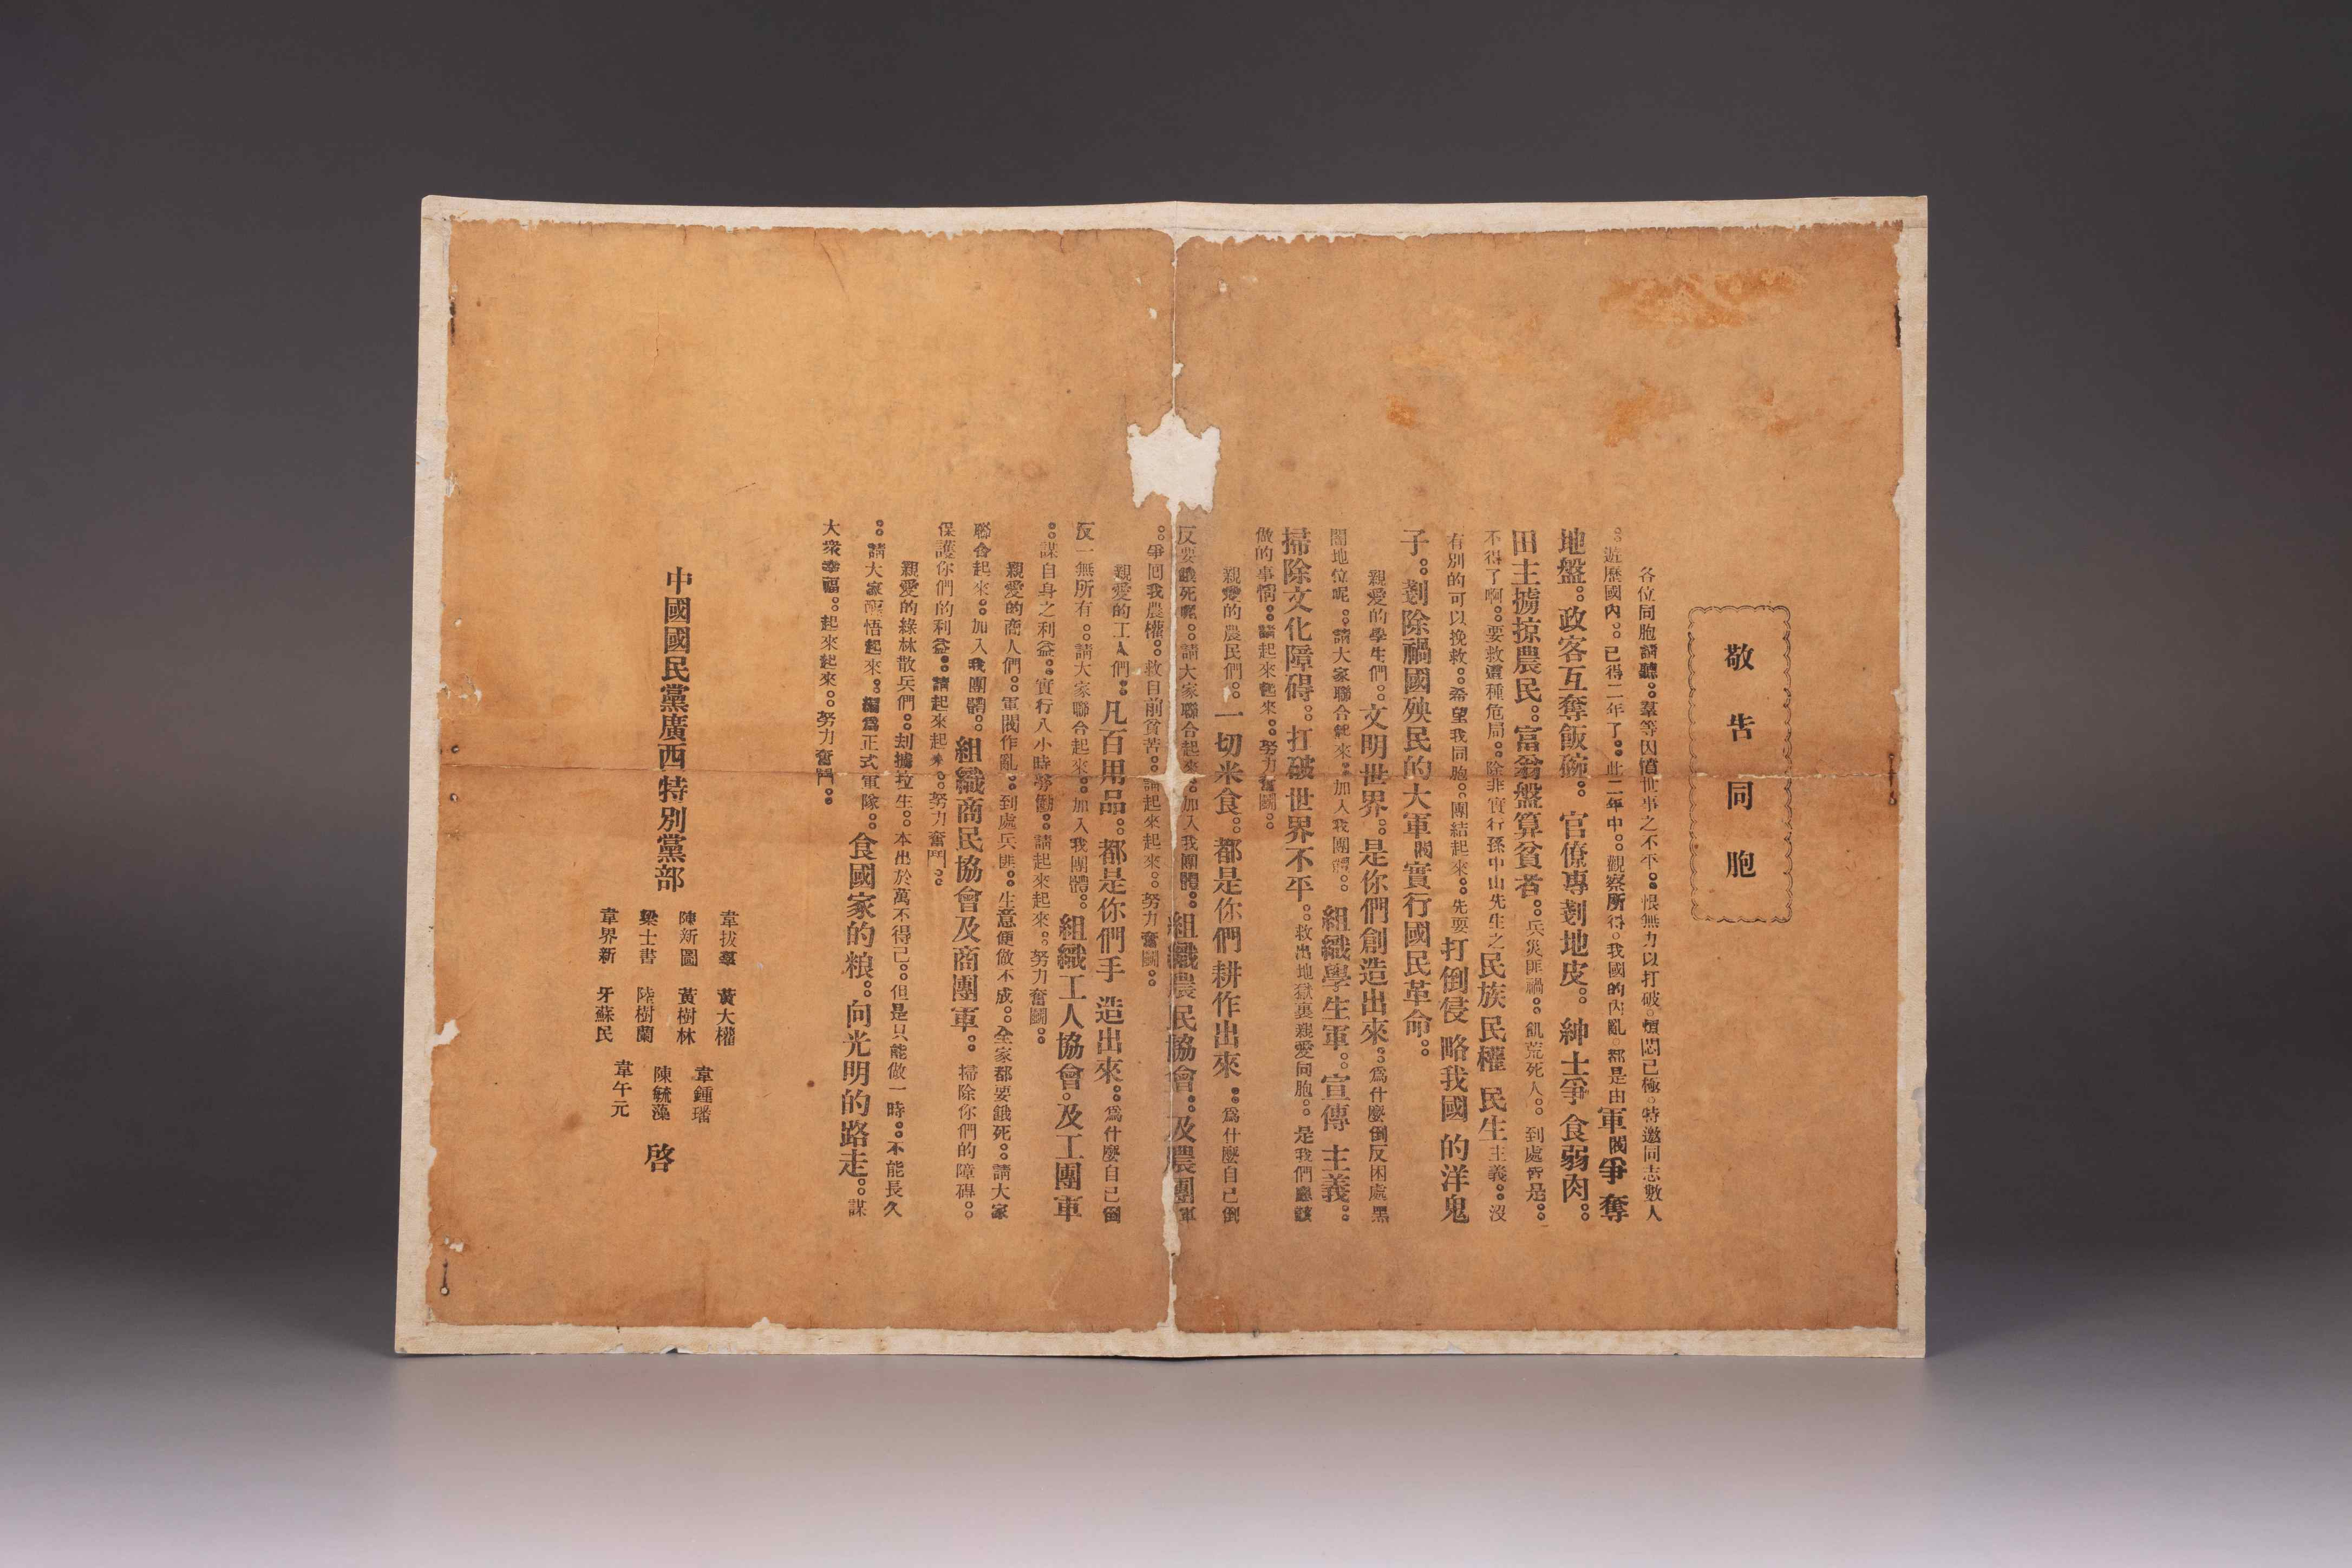 敬告同胞
各位同胞請聽。羣等因憤世事之不平。恨無力以打破。煩悶已極。特邀同志數人
。遊歷國內。已得二年了。此二年中。觀察所得。我國的內亂。都是由軍閥爭奪
地盤。政客互奪飯碗。官僚專剗地皮。紳士爭食弱肉。
田主擄掠農民。富翁盤算貧者。兵災匪禍。飢荒死人。到處皆是。
不得了啊。要救這種危局。除非實行孫中山先生之民族民權民生主義。沒
有別的可以挽救。希望我同胞。團結起來。先要打倒侵略我國的洋鬼
子。剗除禍國殃民的大軍閥實行國民革命。
親愛的學生們。文明世界。是你們創造出來。爲什麼倒反困處黑
闇地位呢。請大家聯合起來。加入我團體。組織學生軍。宣傳主義。
掃除文化障碍。打破世界不平。救出地獄裏親愛同胞。是我們應該
做的事情。請起來起來。努力奮鬪。
親愛的農民們。一切米食。都是你們耕作出來。爲什麼自己倒
反要餓死呢。請大家聯合起來。加入我團體。組織農民協會。及農團軍
。爭回我農權。救目前貧苦。請起來起來。努力奮鬪。
親愛的工人們。凡百用品。都是你們手造出來。爲什麼自己倒
反一無所有。請大家聯合起來。加入我團體。組織工人協會。及工團軍
。謀自身之利益。實行八小時勞働。請起來起來。努力奮鬪。
親愛的商人們。軍閥作亂。到處兵匪。生意便做不成。全家都要餓死。請大家
聯合起來。加入我團體。組織商民協會及商團軍。掃除你們的障碍。
保護你們的利益。請起來起來。努力奮鬥。
親愛的綠林散兵們。刦擄拉生。本出於萬不得已。但是只能做一時。不能長久
。請大家醒悟起來。編爲正式軍隊。食國家的粮。向光明的路走。謀
大衆幸福。起來起來。努力奮鬥。
中國國民黨廣西特別黨部
韋拔羣 黃大權 韋鍾璠
陳新圖 黃樹林 陳毓藻
梁士書 陸樹蘭
韋界新 牙蘇民 韋午元
啓